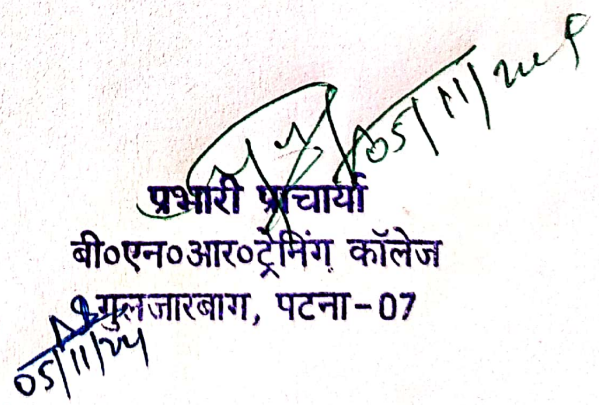 05/11/2024
प्रभारी प्राचार्या
बी०एन०आर०ट्रेनिंग कॉलेज
गुलजारबाग, पटना-07
05/11/24